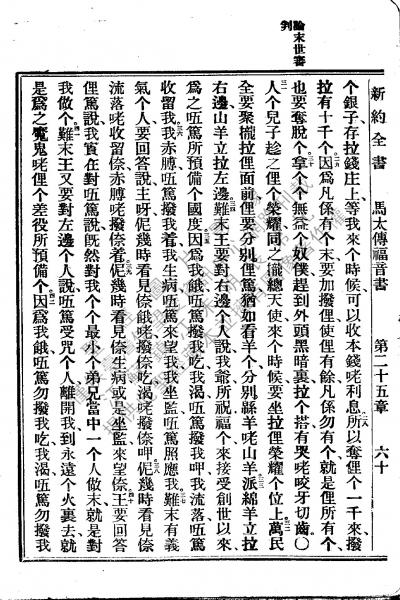 論末世書
判
新約全書　馬太傳福音書　第二十五章　六十
个銀子、存拉錢庄上、等我來个時候、可以收本錢咾利息、所以奪俚个一千、來撥
拉有十千个、因爲凡係有个末、要加撥俚、使俚有餘、凡係勿有个、就是俚所有个、
也要奪脫个、拿个个無益个奴僕、趕到外頭黑暗裏、拉个搭有哭咾咬牙切齒、〇
人个兒子、趁之俚个榮耀、同之攏總天使來个時候、要坐拉俚榮耀个位上、萬民
全要聚攏拉俚面前、俚要分別俚篤、猶如看羊个、分別綿羊咾山羊、派綿羊立拉
右邊、山羊立拉左邊、難末王要對右邊个人說、我爺所祝福个、來接受創世以來、
爲之㕶篤所預備个國度、因爲我餓、㕶篤撥我吃、我渴、㕶篤撥我呷、我流落、㕶篤
收留我、我赤膊、㕶篤撥我着、我生病、㕶篤來望我、我坐監、㕶篤照應我、難末有義
氣个人、要回答說、主呀、伲幾時看見倷餓咾撥倷吃、渴咾撥倷呷、伲幾時看見倷
流落咾收留倷、赤膊咾撥倷着、伲幾時看見倷生病、或是坐監、來望倷、王要回答
俚篤說、我寔在對㕶篤說、旣然對我个个最小个弟兄當中一个人做末、就是對
我做个、難末王又要對左邊个人說、㕶篤受咒个人、離開我、到永遠个火裏去、就
是爲之魔鬼咾俚个差役所預備个、因爲我餓、㕶篤勿撥我吃、我渴、㕶篤勿撥我